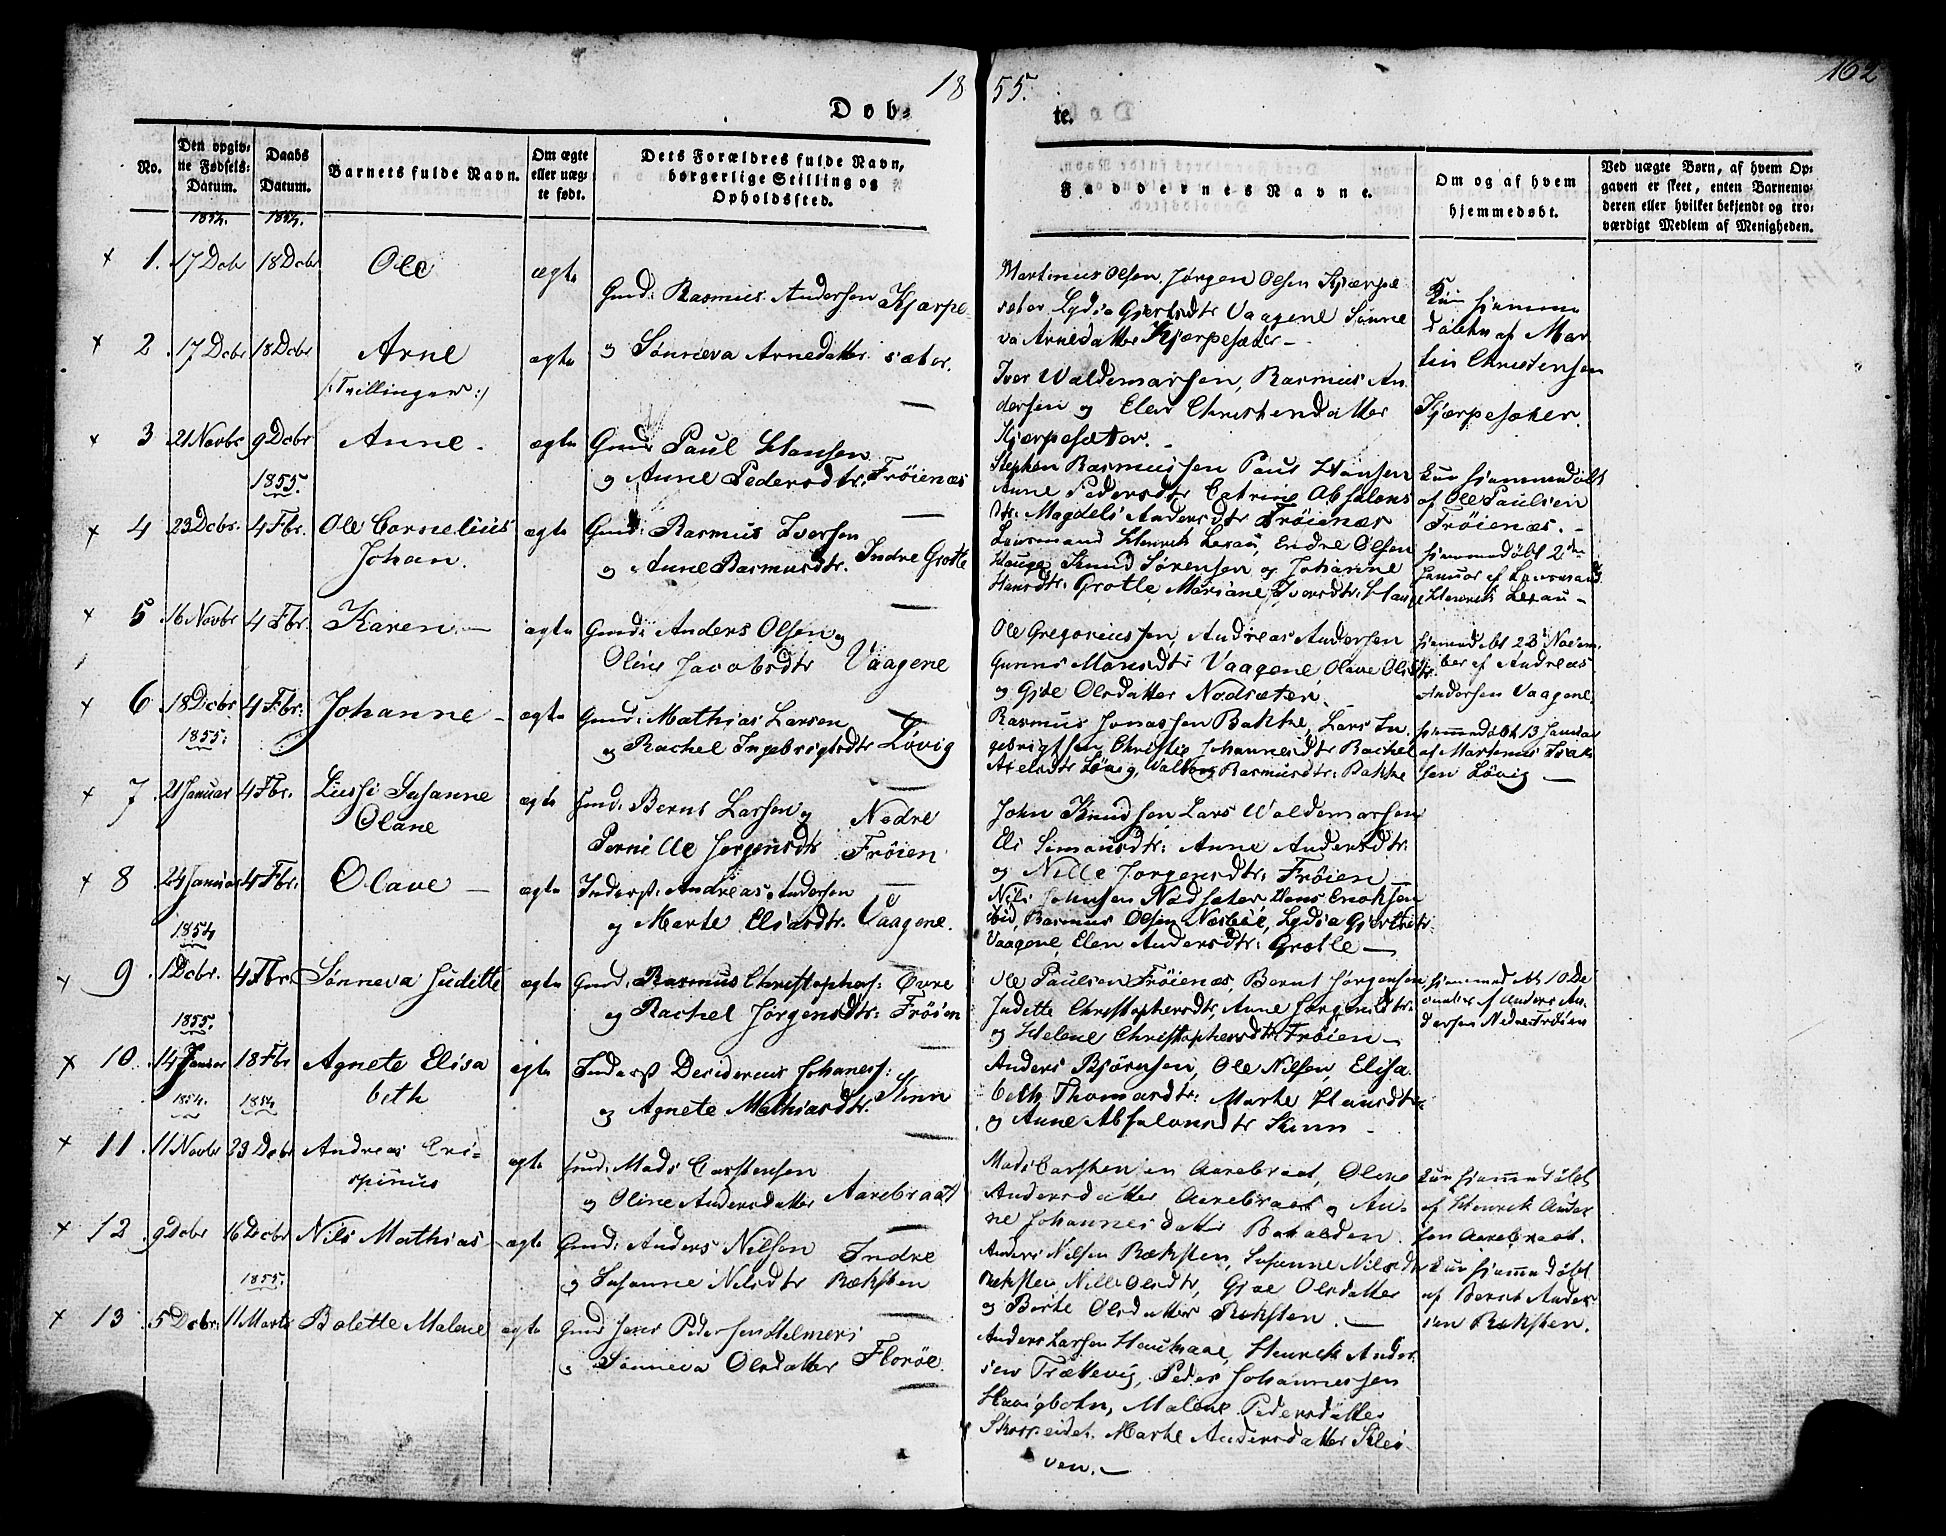 18 55.
162
Døb-
te.
No.
Den opgiv-
ne Fødsels-
Datum.
Daabs
Datum.
Barnets fulde Navn.
Om ægte
eller uæg-
te født.
Dets Forældres fulde Navn,
borgerlige Stilling og
Opholdssted.
Faddernes Navne.
Om og af hvem
hjemmedøbt.
Ved uægte Børn, af hvem Op-
gaven er skeet, enten Barnemo-
deren eller hvilket bekjendt og tro-
værdigt Medlem af Menigheden.
1854. 1854.
× 1. 17 Dcbr 18 Dcbr Ole ægte
Gmd: Rasmus Andersen Kjærpe-
× 2 17 Dcbr 18 Dcbr Arne ægte
og Sønneva Arnedatter sæter.
/:Tvillinger:/
Martinus Olsen, Jørgen Olsen Kjærpe
sæter, Lydia Gjertsdtr Vaagene Sønne
va Arnedatter Kjærpesæter –
Iver Waldemarsen, Rasmus An-
dersen og Elen Christendatter
Kjærpesæter. –
hjemme
døbte af Mar
tin Christensen
Kjærpesæter.
× 3 21 Novbr 9 Dcbr Anne. ægte Gmd: Paul Hansen
og Anne Pedersdtr. Frøienæs
Stephen Rasmussen Paul Hansen
Anne Pedersdtr Catrine Absalons
dtr. Magdeli Andersdtr Frøienæs
kun hjemmedøbt
af Ole Paulsen
Frøienæs. –
1855.
× 4 23 Dcbr. 4 Fbr. Ole Cornelius ægte Gmd: Rasmus Iversen
Johan. og Anne Rasmusdtr. Indre Grotle
Lensmand Henrik Lexau, Endre Olsen
Hauge, Knud Sørensen og Johanne
Hansdtr: Grotle, Mariane Iversdtr: Hauge
hjemmedøbt 2den
Januar af Lensmand
Henrik Lexau –
× 5 16 Novbr 4 Fbr. Karen. – ægte Gmd: Anders Olsen og
Oline Jacobsdtr Vaagene
Ole Gregoriussen, Andreas Andersen
Gunne Monsdtr Vaagene, Olave Olsdtr.
og Gjøe Olsdatter Nodsæter.
hjemmedøbt 23 Novem-
ber af Andreas
Andersen Vaagene
× 6 18 Dcbr. 4 Fbr. Johanne – ægte Gmd: Mathias Larsen
og Rachel Ingebrigtsdtr Løvig
Rasmus Jonassen Bakke, Lars In-
gebrigtsen, Christie Johannesdtr Rachel
Axelsdtr Løvig, Walborg Rasmusdtr: Bakke
hjemmedøbt 13 Januar
af Martinus Isak
sen Løvig –
1855.
× 7 21 Januar 4 Fbr. Liusse Susanne ægte Gmd: Bernt Larsen og Nedre
Olane Pernille Jørgensdtr Frøien
John Knudsen Lars Waldemarsen
Eli Simonsdtr: Anne Andersdtr:
og Nille Jørgensdtr: Frøien
× 8 24 Januar 4 Fbr. Olave – ægte Inderst: Andreas Andersen
og Marte Eliasdtr. Vaagene.
Nils Johnsen Nodsæter Hans Enoksen
ibid, Rasmus Olsen Næsbøe, Lydia Gjertsdtr.
Vaagene, Elen Andersdtr: Grotle –
1854
× 9 1 Dcbr. 4 Fbr. Sønneva Juditte ægte Gmd: Rasmus Christophers: Øvre
og Rachel Jørgensdtr: Frøien
Ole Paulsen Frøienæs, Bernt Jørgensen
Judette Christophersdtr, Anne Jørgensdtr:
og Helene Christophersdtr Frøien –
hjemmedøbt 10 De
cember af Anders An-
dersen Nedre Frøien
1855.
× 10. 14 Januar 18 Fbr Agnete Elisa ægte Inderst Desiderius Johaness:
beth og Agnete Mathiasdtr. Kinn
Anders Bjørnsen, Ole Nilsen, Elisa-
beth Thomasdtr: Marte Hansdtr
og Anne Absalonsdtr Kinn –
1854. 1854
× 11 11 Novbr 23 Dcbr Andreas Cri- ægte Gmd: Mads Carstensen
spinus og Oline Andersdatter Aarebraat
Mads Carstensen Aarebraat, Oline
Andersdatter Aarebraat og An-
ne Johannesdatter
kun hjemmedøbt
af Henrik Ander
sen Aarebraat.
× 12 9 Dcbr 16 Dcbr Nils Mathias – ægte Gmd: Anders Nilsen Indre
og Susanne Nilsdtr Ræksten
Anders Nilsen Ræksten, Susanne Nilsdtr
Ræksten, Nille Olsdtr, Gjøe Olsdatter
og Børte Olsdatter Ræksten. –
kun hjemmedøbt
af Bernt Ander
sen Ræksten.
1855.
× 13 5 Dcbr. 11 Marts Bolette Malene ægte Gmd Iver Pedersen Helmers
og Sønneva Olsdatter Florøe.
Anders Larsen, Henrik Ander-
sen Trættevig, Peder Johannessen
Havigbotn, Malene Pedersdatter
Skorpeidet. Marte Andersdatter Klei-
ven. –